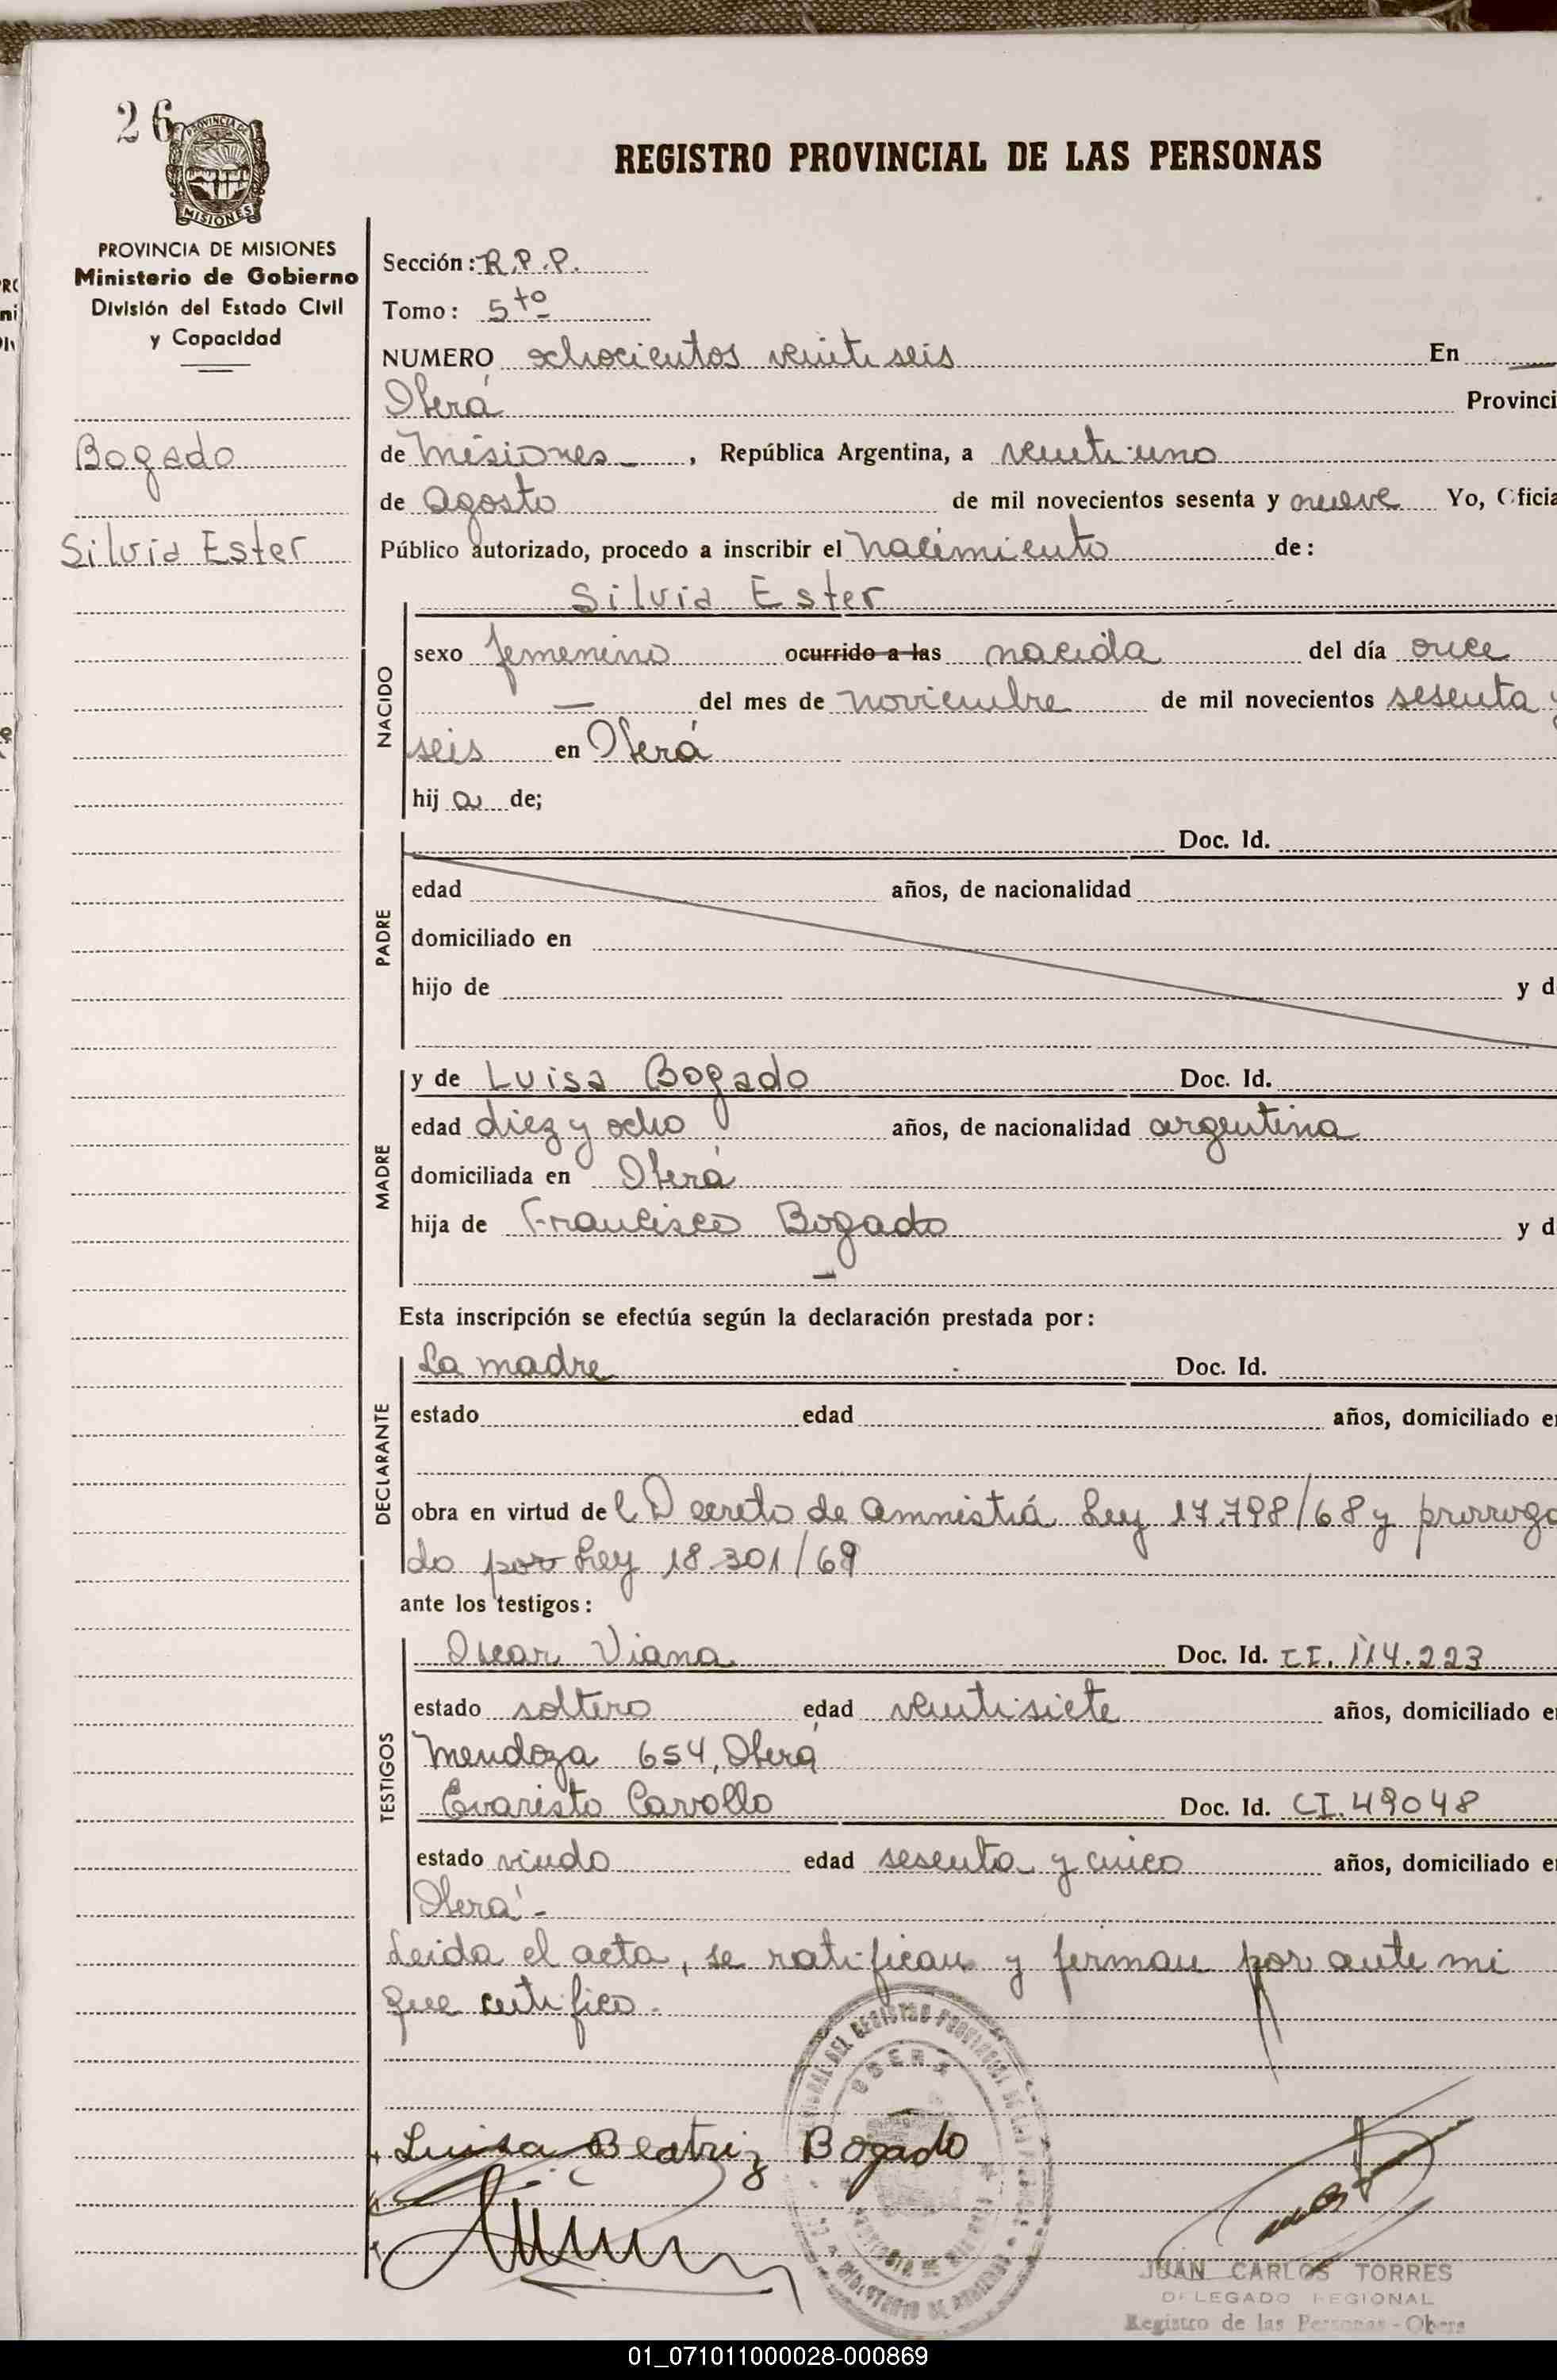 26
PROVINCIA DE
MISIONES
REGISTRO PROVINCIAL DE LAS PERSONAS
PROVINCIA DE MISIONES
Ministerio de Gobierno
División del Estado Civil
y Capacidad
Bogado
Silvia Ester
Sección: R.P.P.
Tomo: 5to
NUMERO ochocientos veinti seis En
Oberá Provinci
de Misiones , República Argentina, a veinti uno
de agosto de mil novecientos sesenta y nueve Yo, Oficia
Público autorizado, procedo a inscribir el nacimiento de:
Silvia Ester
NACIDO
sexo femenino ocurrido a las nacida del día once
del mes de noviembre de mil novecientos sesenta y
seis en Oberá
hij a de;
PADRE
Doc. Id.
edad años, de nacionalidad
domiciliado en
hijo de y d
MADRE
y de Luisa Bogado Doc. Id.
edad diez y ocho años, de nacionalidad argentina
domiciliada en Oberá
hija de Francisco Bogado y d
Esta inscripción se efectúa según la declaración prestada por:
DECLARANTE
La madre Doc. Id.
estado edad años, domiciliado en
obra en virtud de l Decreto de amnistiá Ley 17.798/68 y prorroga
do por Ley 18.301/69
ante los testigos:
TESTIGOS
Oscar Viana Doc. Id. CI. 114.223
estado soltero edad veinti siete años, domiciliado en
Mendoza 654, Oberá
Evaristo Carvallo Doc. Id. CI. 49048
estado viudo edad sesenta y cinco años, domiciliado en
Oberá -
Leida el acta, se ratifican y firman por ante mi
que certifico.
OBERA
Luisa Beatriz Bogado
JUAN CARLOS TORRES
DELEGADO REGIONAL
Registro de las Personas - Obera
01_071011000028-000869